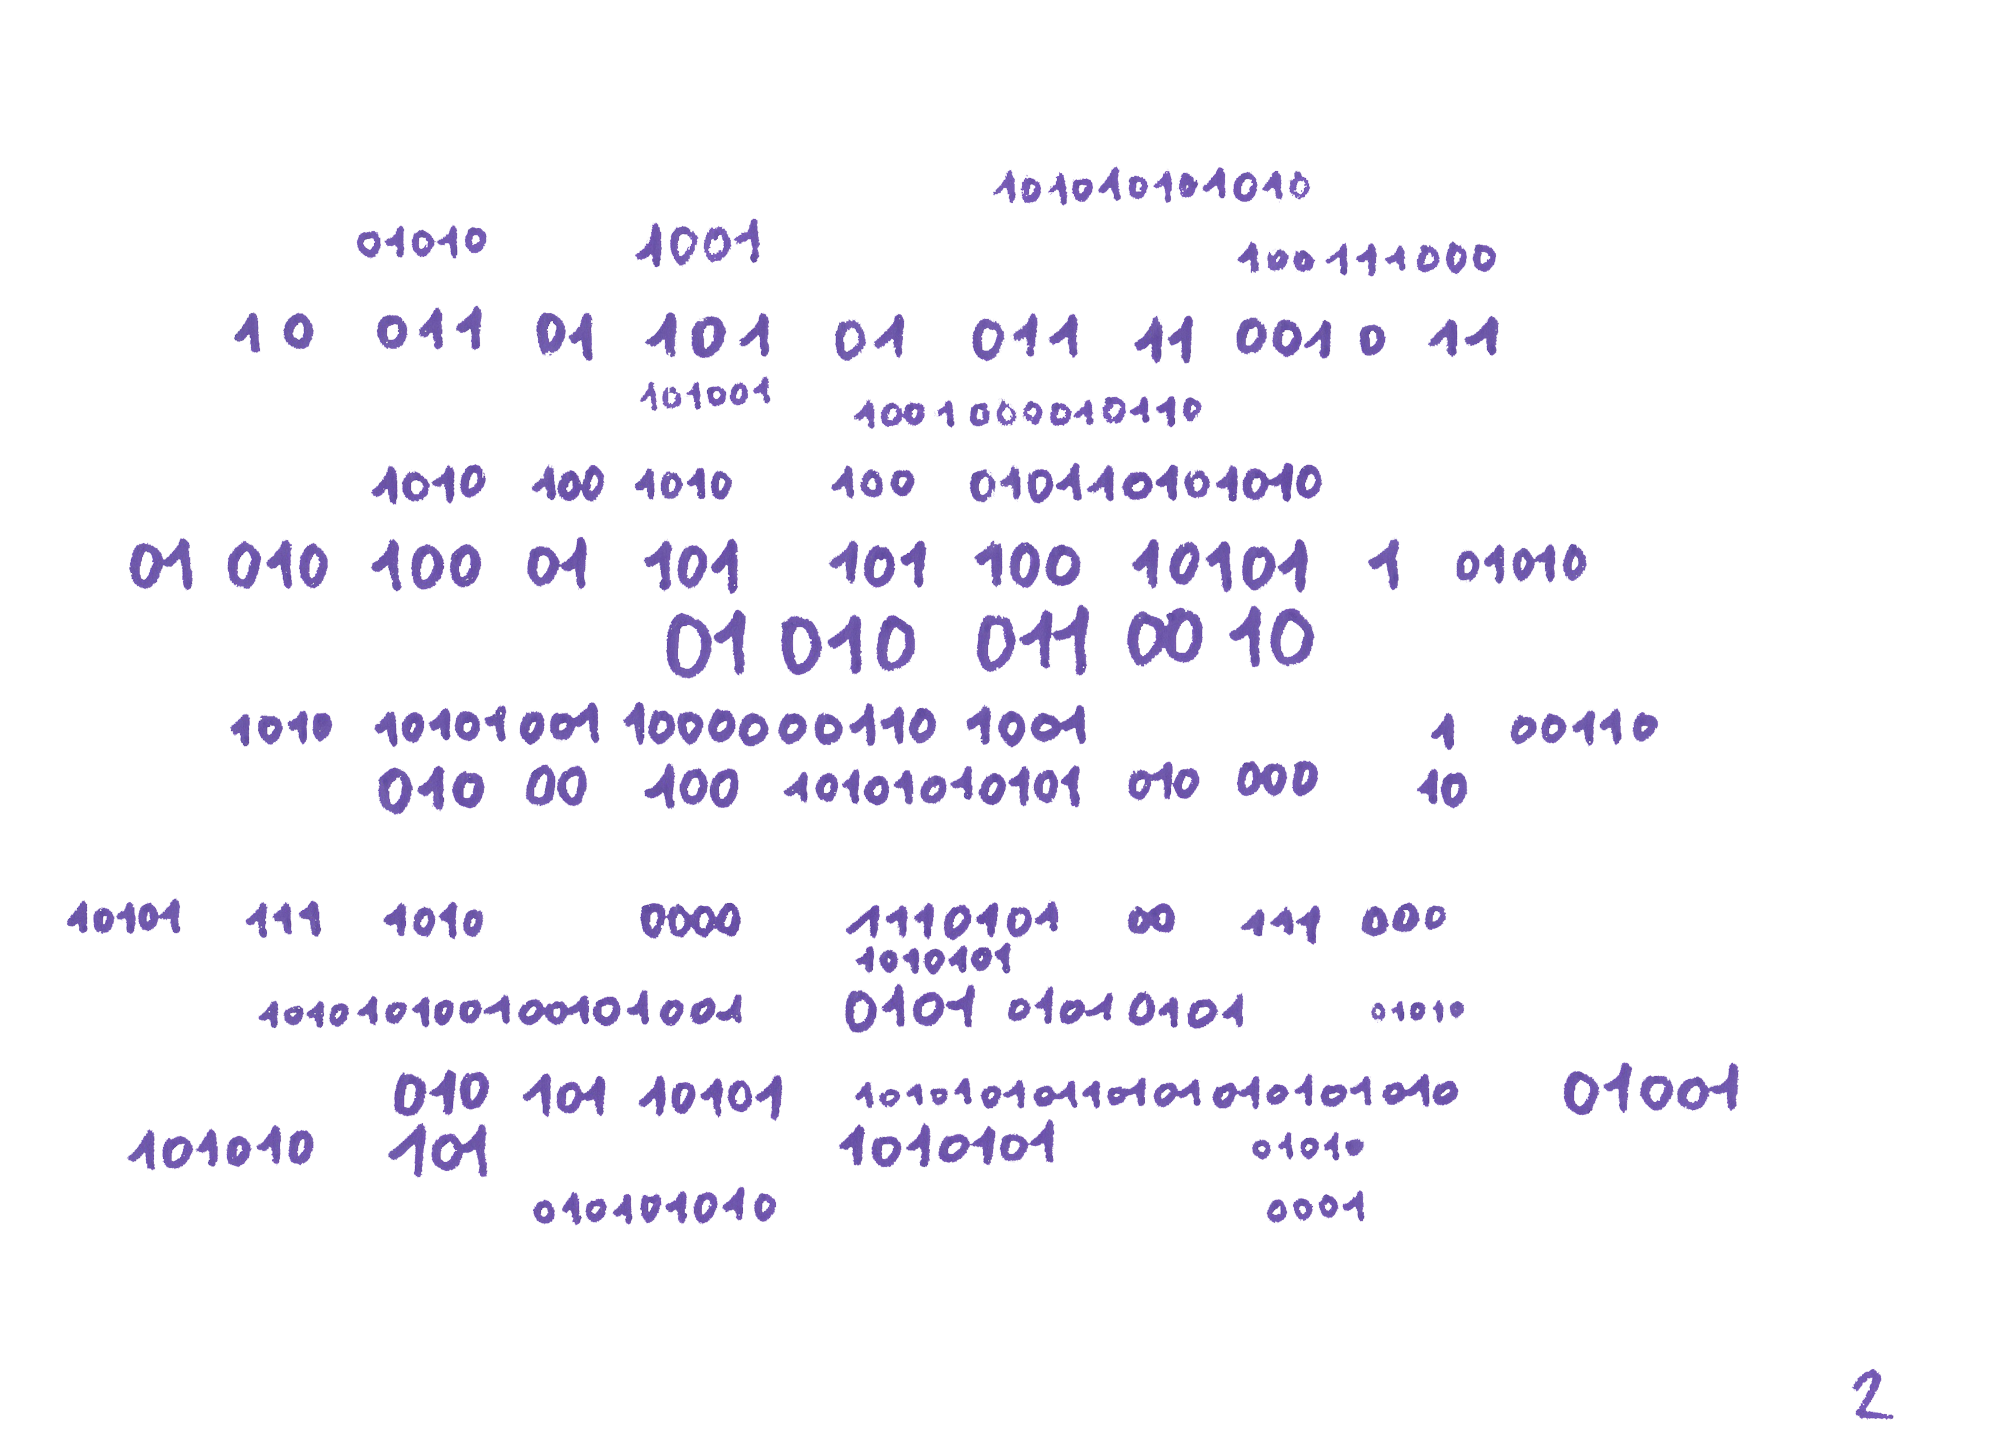 101010101010
01010 1001
100111000
10 011 01 101 01 011 11 001 0 11
101001
1001000010110
1010 100 1010 100 010110101010
01 010 100 01 101 101 100 10101 1 01010
01 010 011 00 10
1010 10101001 1000000110 1001 1 00110
010 00 100 10101010101 010 000 10
10101 111 1010 0000 1110101 00 111 000
1010101
101010100100101001 0101 0101 0101 01010
010 101 10101 1010101011010101010101010 01001
101010 101 1010101 01010
010101010 0001
2